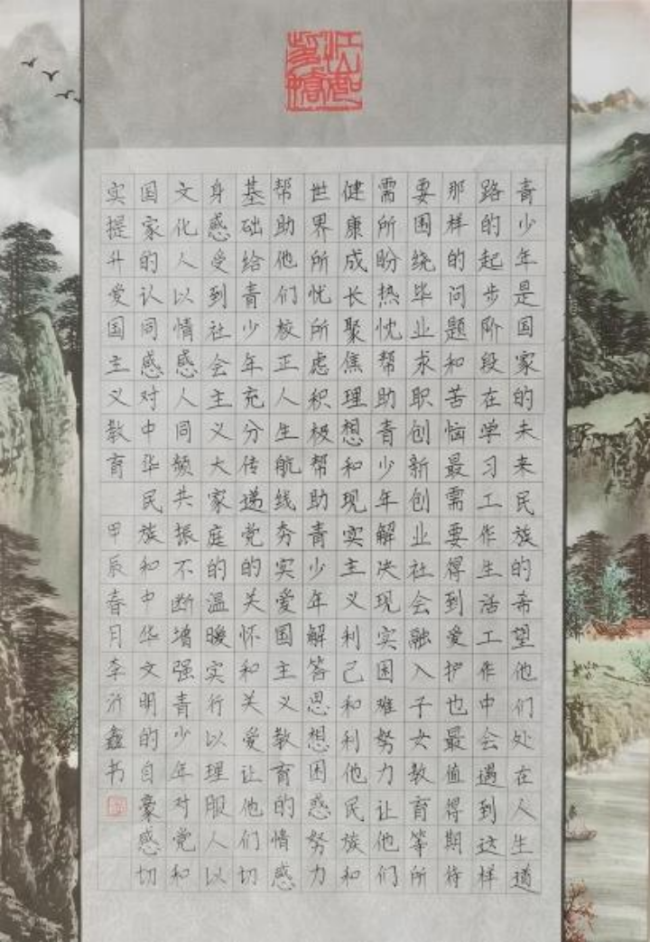 青少年是国家的未来民族的希望他们处在人生道
路的起步阶段在学习工作生活工作中会遇到这样
那样的问题和苦恼最需要得到爱护也最值得期待
要围绕毕业求职创新创业社会融入子女教育等所
需所盼热忱帮助青少年解决现实困难努力让他们
健康成长聚焦理想和现实主义利己和利他民族和
世界所忧所虑积极帮助青少年解答思想困惑努力
帮助他们校正人生航线夯实爱国主义教育的情感
基础给青少年充分传递党的关怀和关爱让他们切
身感受到社会主义大家庭的温暖实行以理服人以
文化人以情感人同频共振不断增强青少年对党和
国家的认同感对中华民族和中华文明的自豪感切
实提升爱国主义教育 甲辰春月李沂鑫书